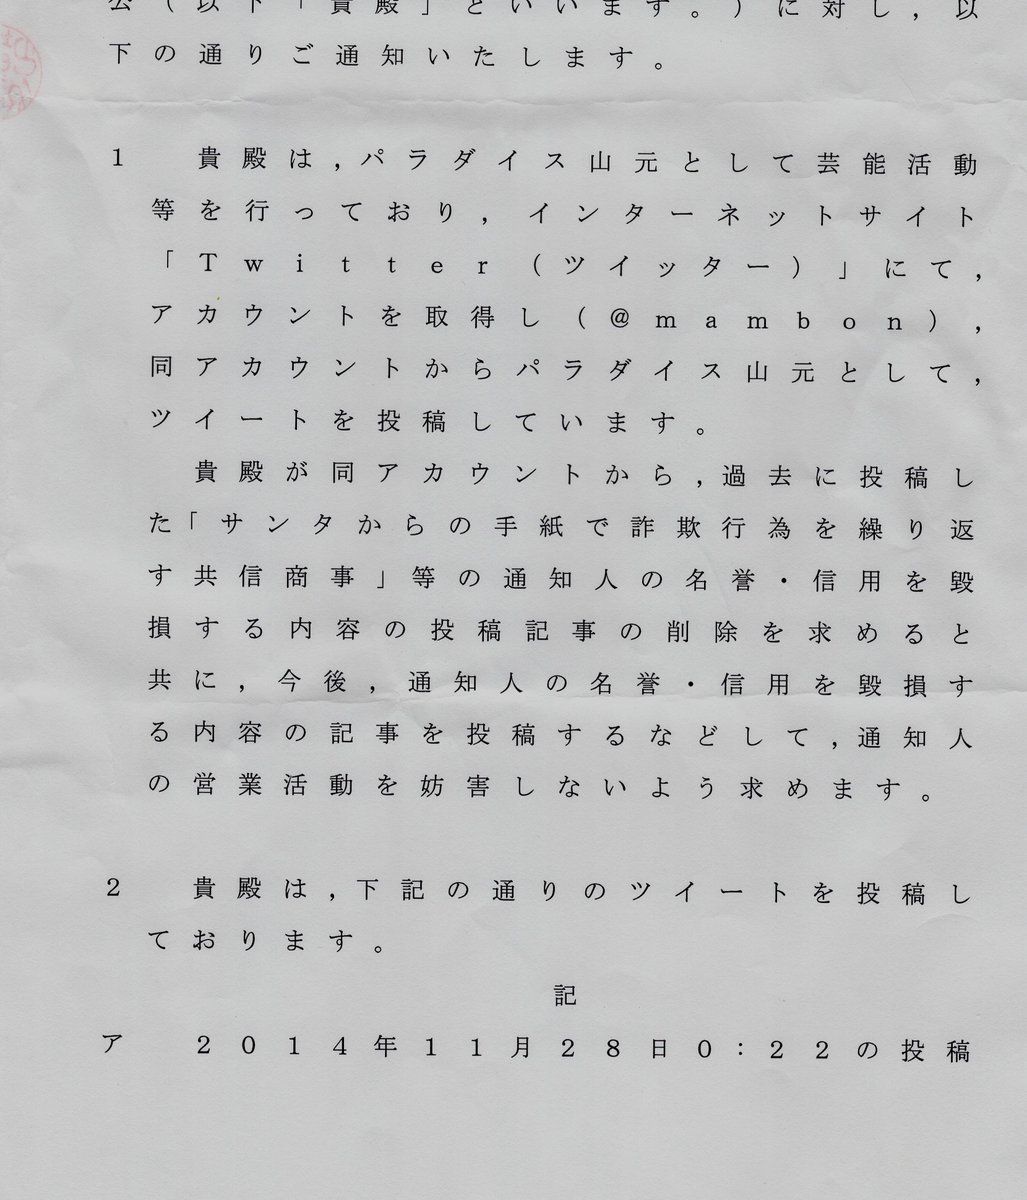 公（以下「貴殿」といいます。）に対し，以
下の通りご通知いたします。
１　貴殿は，パラダイス山元として芸能活動
等を行っており，インターネットサイト
「Ｔｗｉｔｔｅｒ（ツイッター）」にて，
アカウントを取得し（＠ｍａｍｂｏｎ），
同アカウントからパラダイス山元として，
ツイートを投稿しています。
貴殿が同アカウントから，過去に投稿し
た「サンタからの手紙で詐欺行為を繰り返
す共信商事」等の通知人の名誉・信用を毀
損する内容の投稿記事の削除を求めると
共に，今後，通知人の名誉・信用を毀損す
る内容の記事を投稿するなどして，通知人
の営業活動を妨害しないよう求めます。
２　貴殿は，下記の通りのツイートを投稿し
ております。
記
ア　２０１４年１１月２８日０：２２の投稿